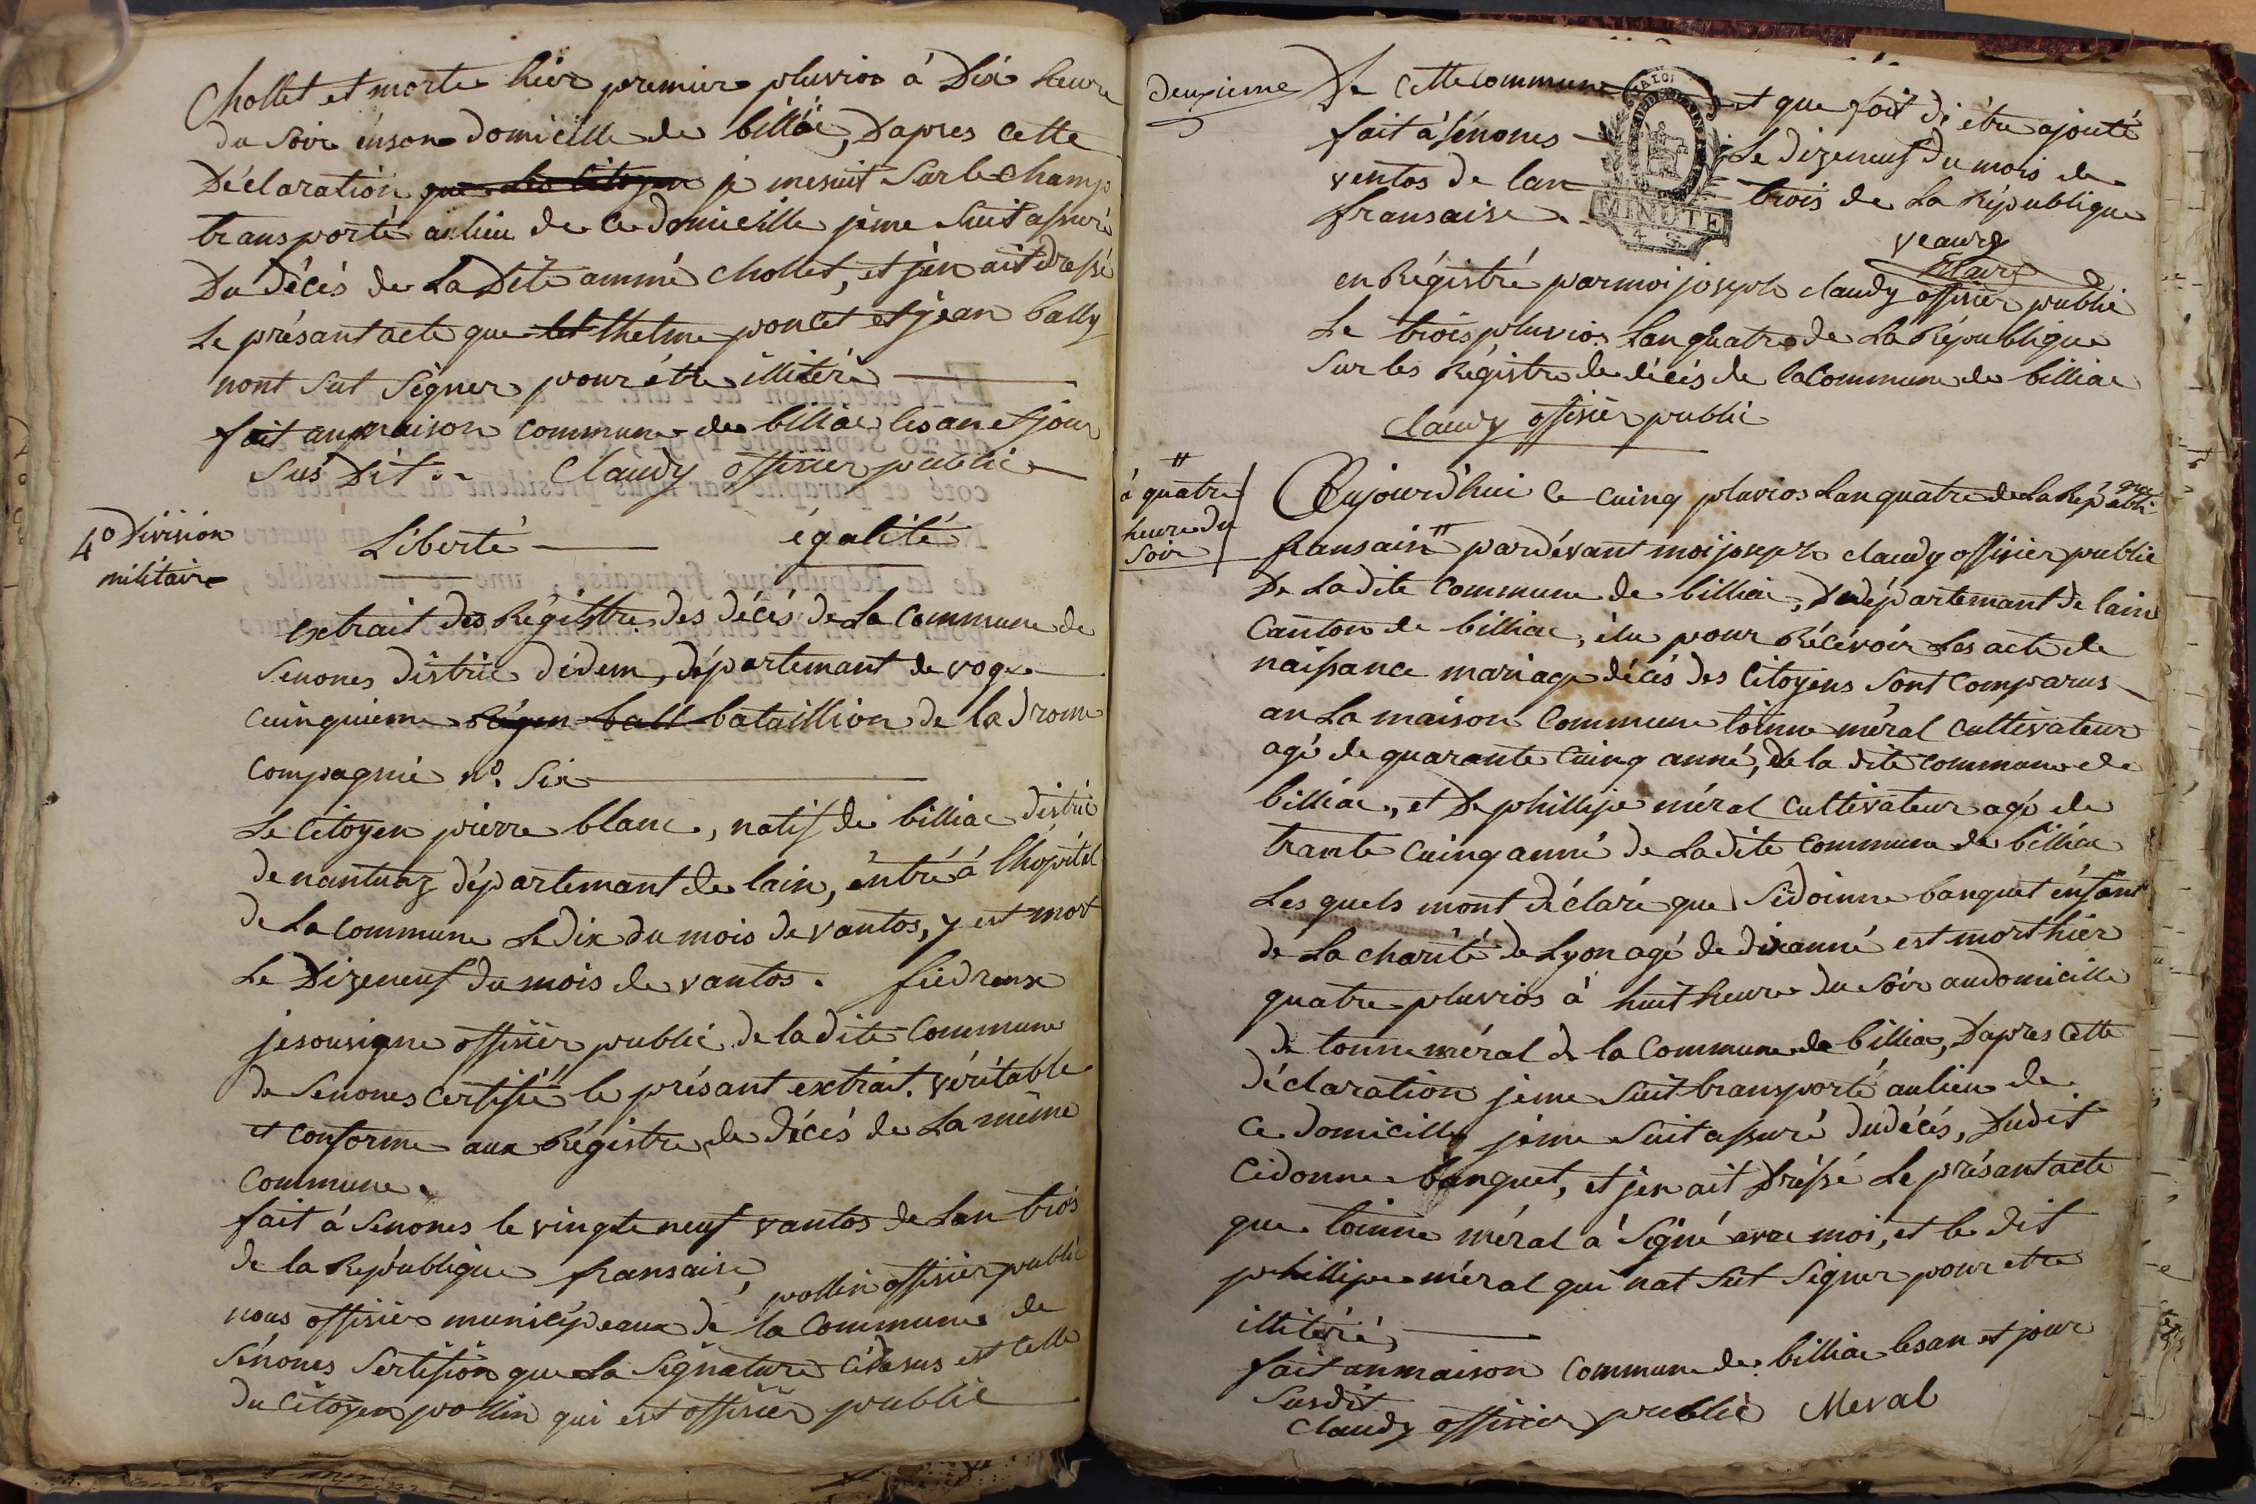 Chollet et morte hier premier pluvios à Dix heure
du Soir énson domicille de billiac, Dapres cette
Déclaration que Les Citoyen je mesuit Sur le Champ
transporté aulieu de ce domicille jéme Suit assuré
Du décés de La Dite ammé Chollet, et jén ait dressé
Le présant acte que let thelme poncet et jéan bally
nont Sut Signer pour étre illitéré
fait aumaison Commune de billiac les an et jour
Sus Dit Claudy offisier public
4º Division
militaire
Liberté égalité
extrait des Régistre des décés de La Commune de
Senones distric didem, département de voge
Cuinquieme Régen batt bataillion de la drome
Compagnie nº Six
Le Citoyen pierre blanc, natif de billiac distric
de nantuaz département de lain, éntré à lhopital
de La Commune Le dix du mois de vantos, y est mort
Le Dizeneuf du mois de vantos. fiédreux
je sousigne offisiér public de ladite Commune
de Senones Certifié le présant extrait véritable
et Conforme aux Régistre de décés de La même
Commune.
fait à Senones le vingte neuf vantos de Lan trois
de la République fransaise pollin offisier public
nous offisier municipeaux de la Commune de
Sénones Sertifion que La Signature Cidesus est Celle
du Citoyen pollin qui est offisiér public
deuxieme
De Cette Commune et que foit di étre ajouté
fait à Sénones Le dizeneuf du mois de
ventos de lan trois de La République
fransaise
MINUTE
en Régistré par moi joseph claudy offisier public
Le trois pluvios Lan quatre de La République
Sur les Régistre de décés de la Commune de billiac
Claudy offisiér public
à quatre
heure du
Soir
Aujourdhui le Cuinq pluvios Lan quatre de La République
fransaise par dévant moi joseph claudy offisier public
De Ladite Commune de billiac, Dudépartemant de lain
Canton de billiac, élu pour Récévoir Les acte de
naissance mariage décés des Citoyens Sont Comparus
an La maison Commune toinne méral Cultivateur
agé de quarante Cuinq anné, De la dite Commune de
billiac, et De phillipe méral Cultivateur agé de
trante Cuinq anné de Ladite Commune de billiac
Les quels mont déclaré que Sidoinne banquet énfant
de La charité de Lyon agé de dix anné est mort hier
quatre pluvios à huit heure du Soir audomicille
de toinne méral de la Commune de billiac, Dapres Cette
déclaration jéme Suit transporté aulieu de
Ce domicille jéme Suit assuré dudécés, Dudit
Cidonne banquet, et jen ait Dréssé Le présant acte
que toinne méral à Signé avec moi, et le dit
phillipe méral qui nat Sut Signer pour etre
illitéré,
fait anmaison Commune de billiac les an et jour
Susdit
Claudy offisier public Meral